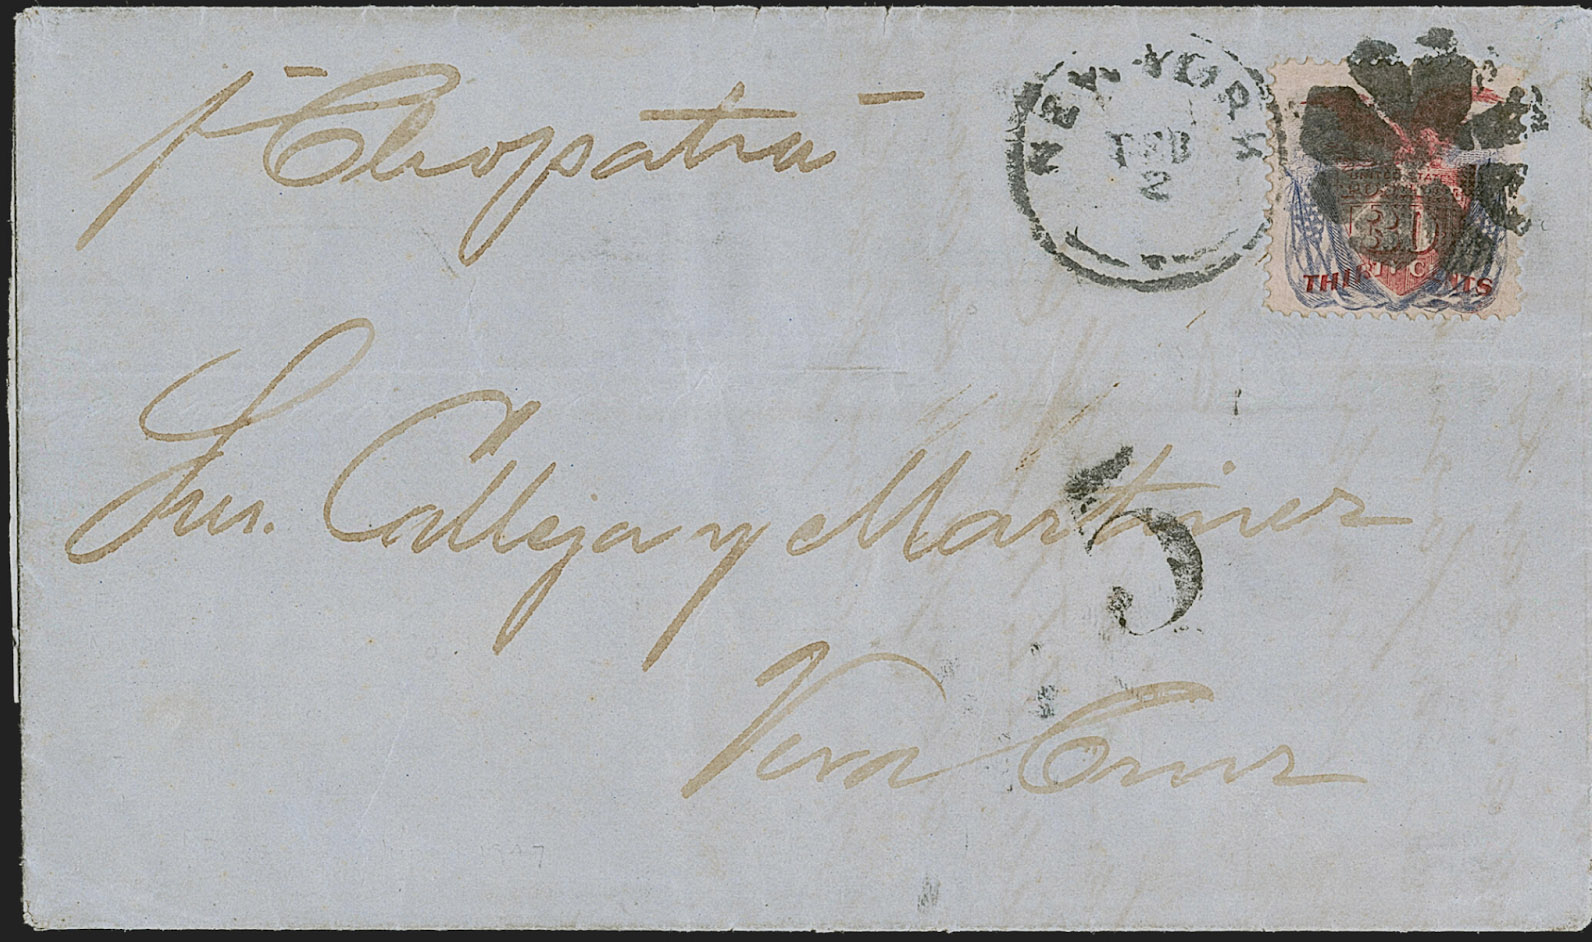 p Cleopatra
NEW YORK
FEB
2
UNITED STATES
30
THIRTY CENTS
Sres. Calleja y Martinez
5
Vera Cruz